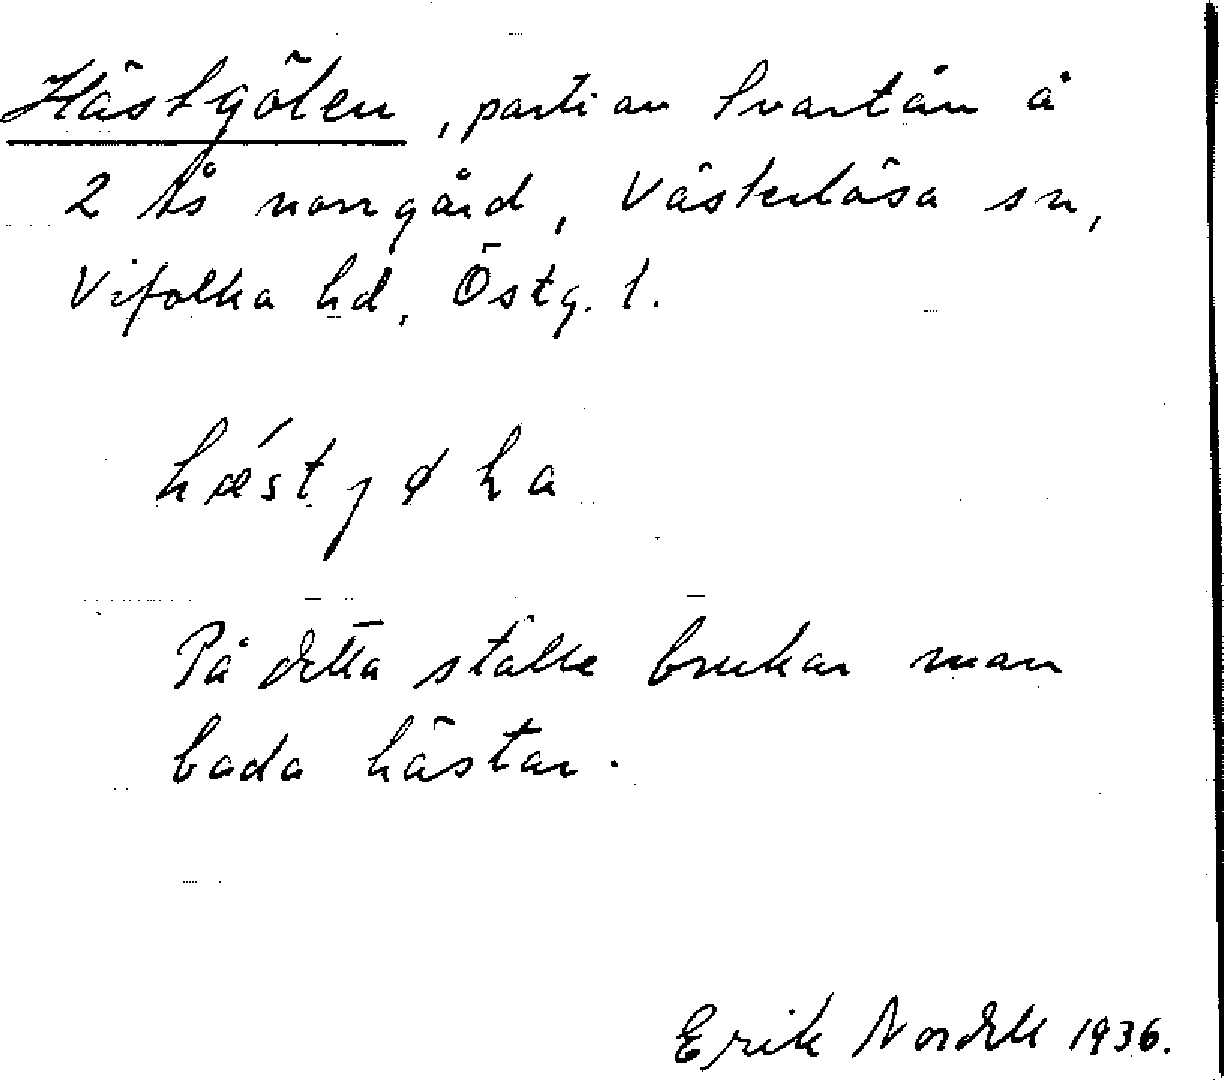 Hästgölen, parti av Svartån å
2 Ås norrgård, Västerlösa sn,
Vifolka hd, Östg. l.
hǽstjøha
På detta ställe brukar man
bada hästar.
Erik Nordell 1936.